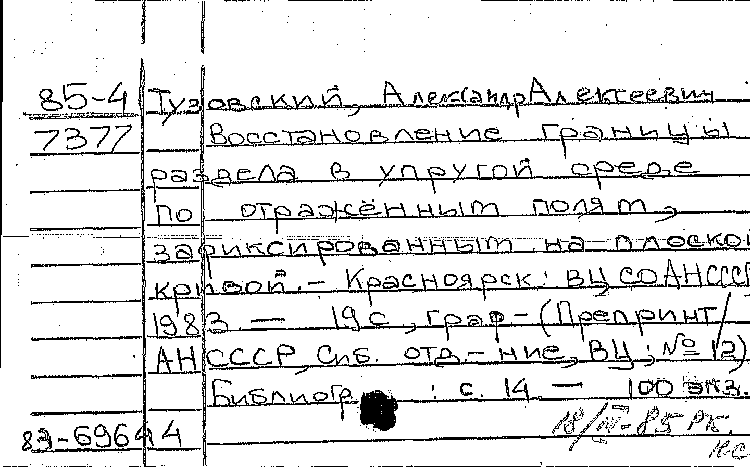 85-4 Тузовский, Александр Алексеевич
7377 Восстановление границы
раздела в упругой среде
по отражённым полям,
зафиксированным на плоской
кривой. - Красноярск: ВЦ СО АН СССР
1983. — 19 с., граф - (Препринт/
АН СССР, Сиб. отд-ние, ВЦ; № 12)
Библиогр : с. 14 — 100 экз.
18/IV-85 РК.
83-69644
НС